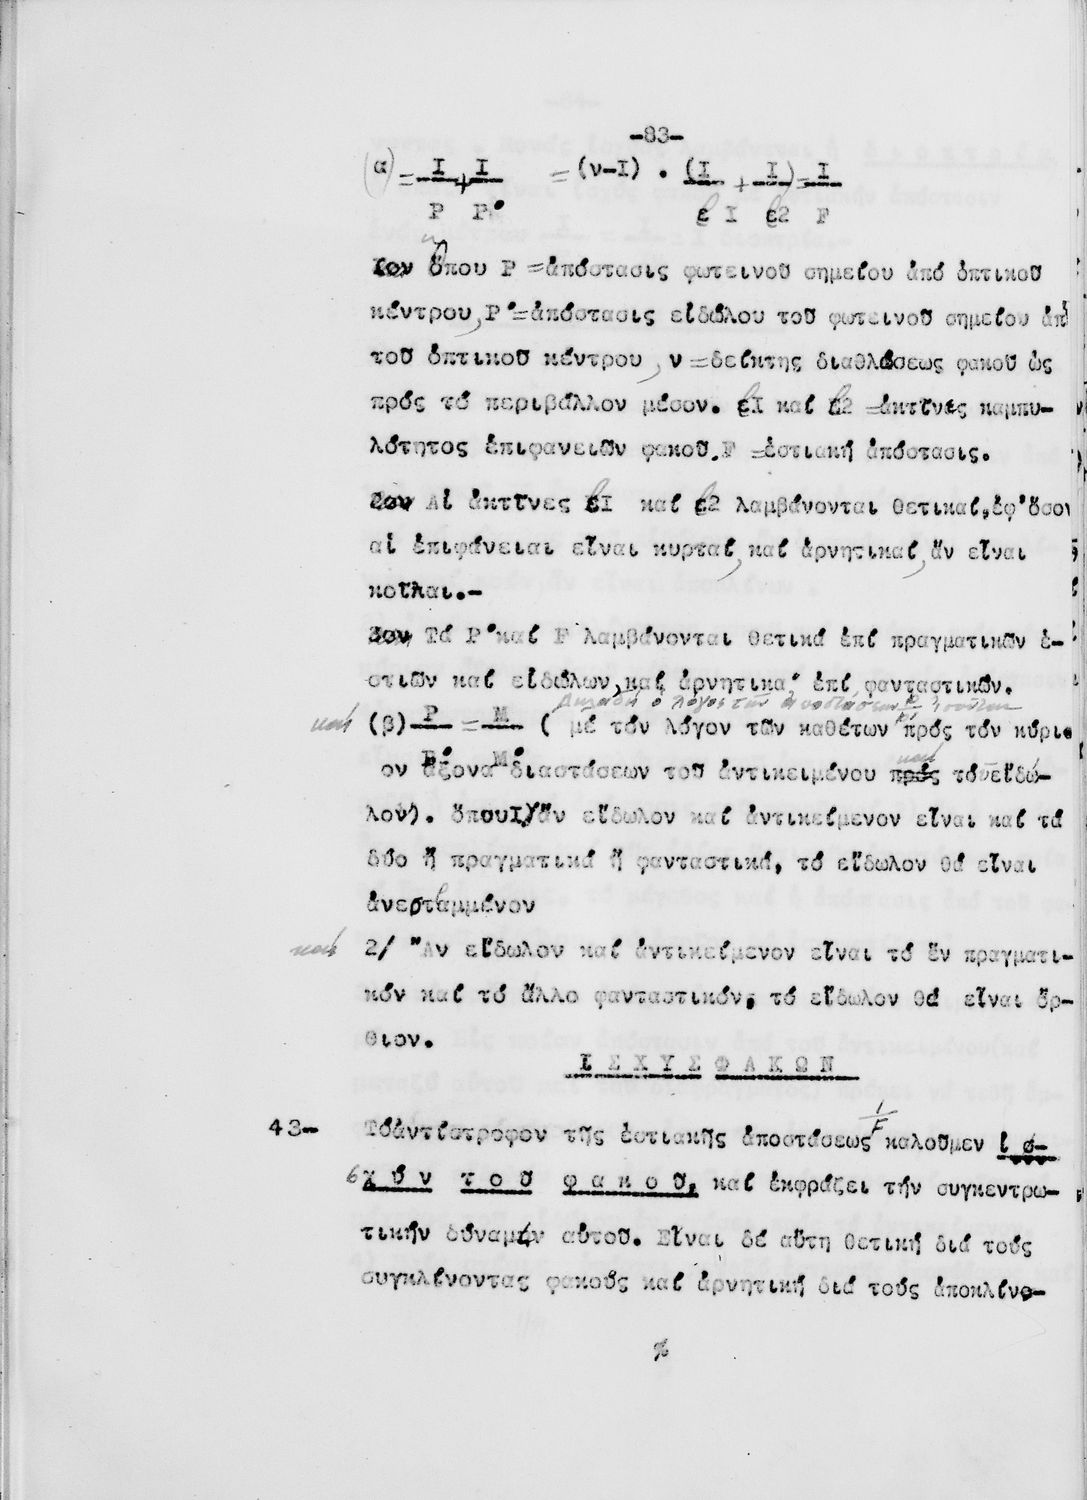 -83-
(α) = I + I = (ν-I) . (I + I) = I
Ρ Ρ' ρ I ρ2 F
Ιον ὅπου Ρ =ἀπόστασις φωτεινοῦ σημείου ἀπό ὀπτικοῦ
κέντρου, Ρ'=ἀπόστασις εἰδώλου τοῦ φωτεινοῦ σημείου ἀπό
τοῦ ὀπτικοῦ κέντρου , ν =δείκτης διαθλάσεως φακοῦ ὡς
πρός τό περιβάλλον μέσον. ρI καί ρ2 =ἀκτῖνες καμπυ-
λότητος ἐπιφανειῶν φακοῦ. F =ἐστιακή ἀπόστασις.
2ον Αἱ ἀκτῖνες ρI καί ρ2 λαμβάνονται θετικαί, ἐφ'ὅσον
αἱ ἐπιφάνειαι εἶναι κυρταί, καί ἀρνητικαί, ἄν εἶναι
κοῖλαι.-
3ον Τά Ρ'καί F λαμβάνονται θετικά ἐπί πραγματικῶν ἐ-
στιῶν καί εἰδώλων, καί ἀρνητικα' ἐπί φανταστικῶν.
Δηλαδή ὁ λόγος τῶν ἀποστάσεων Ρ/Ρ' ἰσοῦται
καί (β) Ρ = Μ ( μέ τόν λόγον τῶν καθέτων πρός τόν κύρι-
Ρ' Μ'
ον ἄξονα διαστάσεων τοῦ ἀντικειμένου πρός καί τοῦ εἰδώ-
λου). ὅπου I) ἄν εἴδωλον καί ἀντικείμενον εἶναι καί τά
δύο ἤ πραγματικά ἤ φανταστικά, τό εἴδωλον θά εἶναι
ἀνεστραμμένον
καί 2/ "Αν εἴδωλον καί ἀντικείμενον εἶναι τό ἕν πραγματι-
κόν καί τό ἄλλο φανταστικόν, τό εἴδωλον θά εἶναι ὄρ-
θιον.
Ι Σ Χ Υ Σ Φ Α Κ Ω Ν
43- Τόἀντίστροφον τῆς ἐστιακῆς ἀποστάσεως 1/F καλοῦμεν ἰ σ-
χ ύ ν τ ο ῦ φ α κ ο ῦ, καί ἐκφράζει τήν συγκεντρω-
τικήν δύναμιν αὐτοῦ. Εἶναι δέ αὕτη θετική διά τούς
συγκλίνοντας φακούς καί ἀρνητική διά τούς ἀποκλίνο-